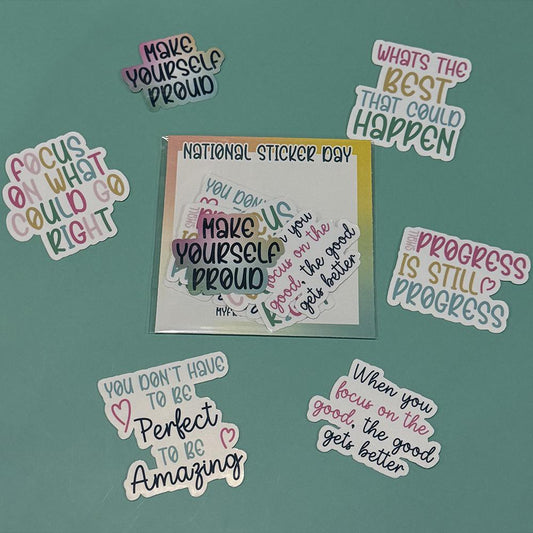 MAKE
YOURSELF
PROUD
WHATS THE
BEST
THAT COULD
HAPPEN
FOCUS
ON WHAT
COULD GO
RIGHT
NATIONAL STICKER DAY
YOU DON'T
FOCUS
MAKE
YOURSELF
PROUD
When you
focus on the
good, the good
gets better
SMALL
PROGRESS
IS STILL
PROGRESS
YOU DON'T HAVE
TO BE
Perfect
TO BE
Amazing
When you
focus on the
good, the good
gets better